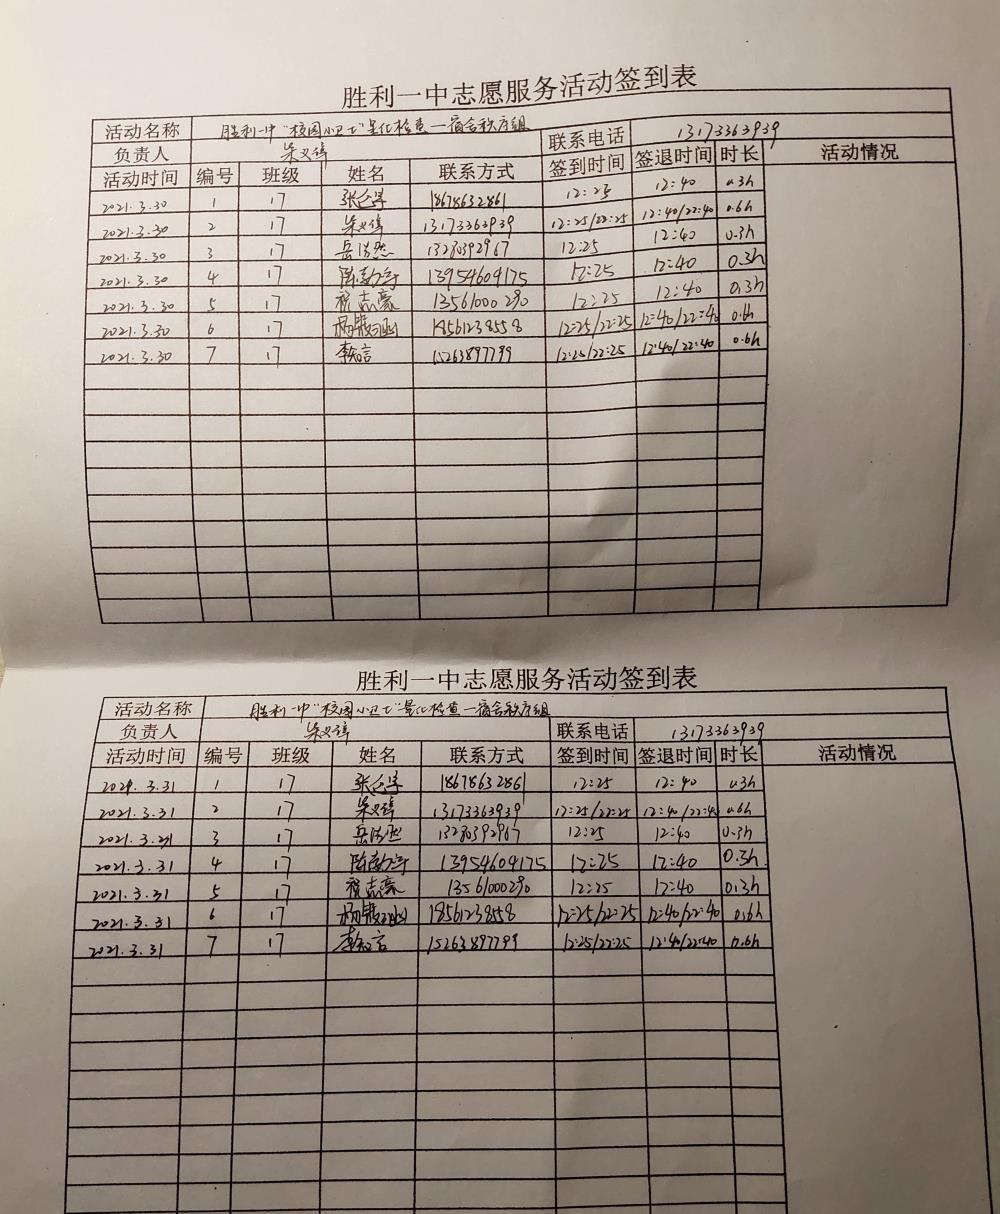 胜利一中志愿服务活动签到表
活动名称 胜利一中“校园小卫士”量化检查—宿舍秩序组
负责人 朱义 联系电话 13173363939
活动时间 编号 班级 姓名 联系方式 签到时间 签退时间 时长 活动情况
2021.3.30 1 17 张 18678632861 12:25 12:40 0.3h
2021.3.30 2 17 朱义 13173363939 12:25/22:25 12:40/22:40 0.6h
2021.3.30 3 17 岳浩然 13280392967 12:25 12:40 0.3h
2021.3.30 4 17 陈 13954604175 12:25 12:40 0.3h
2021.3.30 5 17 程志豪 13561000290 12:25 12:40 0.3h
2021.3.30 6 17 18561238558 12:25/22:25 12:40/22:40 0.6h
2021.3.30 7 17 李言 15263897799 12:25/22:25 12:40/22:40 0.6h
胜利一中志愿服务活动签到表
活动名称 胜利一中“校园小卫士”量化检查—宿舍秩序组
负责人 朱义 联系电话 13173363939
活动时间 编号 班级 姓名 联系方式 签到时间 签退时间 时长 活动情况
2021.3.31 1 17 张 18678632861 12:25 12:40 0.3h
2021.3.31 2 17 朱义 13173363939 12:25/22:25 12:40/22:40 0.6h
2021.3.31 3 17 岳浩然 13280392967 12:25 12:40 0.3h
2021.3.31 4 17 陈 13954604175 12:25 12:40 0.3h
2021.3.31 5 17 程志豪 13561000290 12:25 12:40 0.3h
2021.3.31 6 17 18561238558 12:25/22:25 12:40/22:40 0.6h
2021.3.31 7 17 李言 15263897799 12:25/22:25 12:40/22:40 0.6h